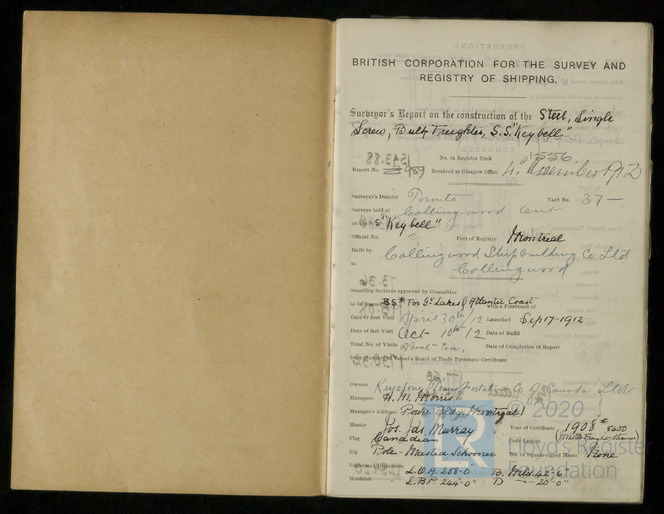 BRITISH CORPORATION FOR THE SURVEY AND
REGISTRY OF SHIPPING.
Surveyor's Report on the construction of the Steel, Single
Screw, Bulk Freighter, S.S. "Keybell"
No. in Register Book 1556
Report No. 959 Rendered at Glasgow Office 4. November 1912
Surveyor's District Toronto Yard No. 37
Surveys held at Collingwood Ont
"Keybell"
Official No. Port of Registry Montreal
Built by Collingwood Shipbuilding Co. Ltd
at Collingwood
Scantling Sections approved by Committee
to be BS* For Gt Lakes & Atlantic Coast with a Freeboard of
Date of first Visit April 30th/12 Launched Sep 17-1912
Date of last Visit Oct 10th/12 Date of Build
Total No. of Visits About ten. Date of Completion of Report
Board of Trade Passenger Certificate
Owners Keystone Transportation Co of Canada Ltd.
Managers H. M. Morris
Manager's Address Power Bldg. Montreal
Master Jos. Jas. Murray Year of Certificate 1908 # 5200
Flag Canadian Code Letters
Rig Pole-Masted Schooner None
L.O.A. 258-0 B. Mld 42-6"
Moulded L.B.P. 244-0" D -"- 20-0"
© 2020
Lloyd's Register
Foundation